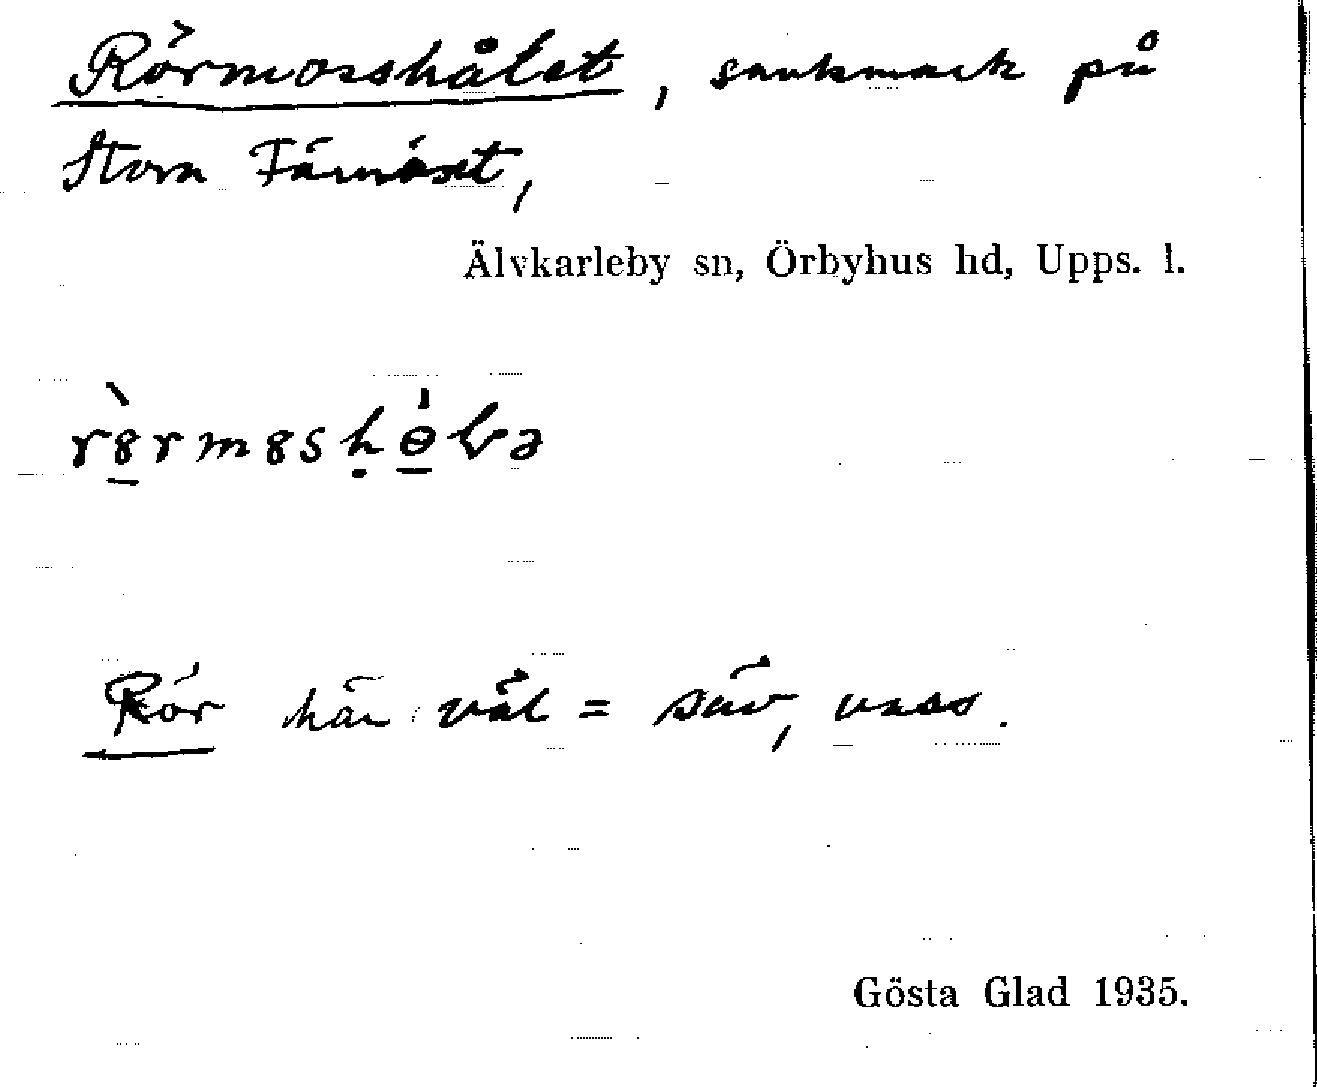 Rörmosshålet, sankmark på
Stora Tärnöset,
Älvkarleby sn, Örbyhus hd, Upps. l.
rö̀rmosḥɵ́lə
Rör här väl = säv, vass.
Gösta Glad 1935.